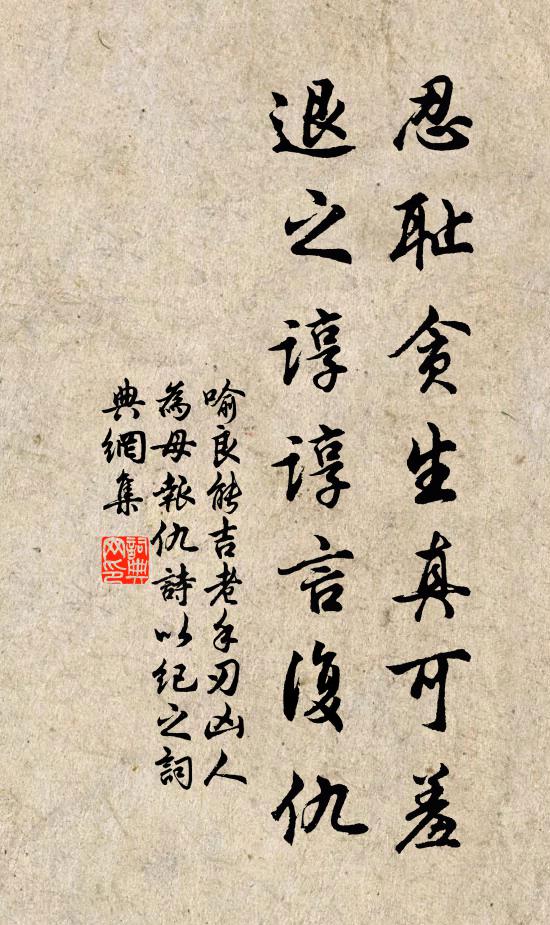 忍耻贪生真可羞
退之谆谆言復仇
喻良能吉老手刃凶人
為母報仇詩以纪之詞
典網集
詞典
网印